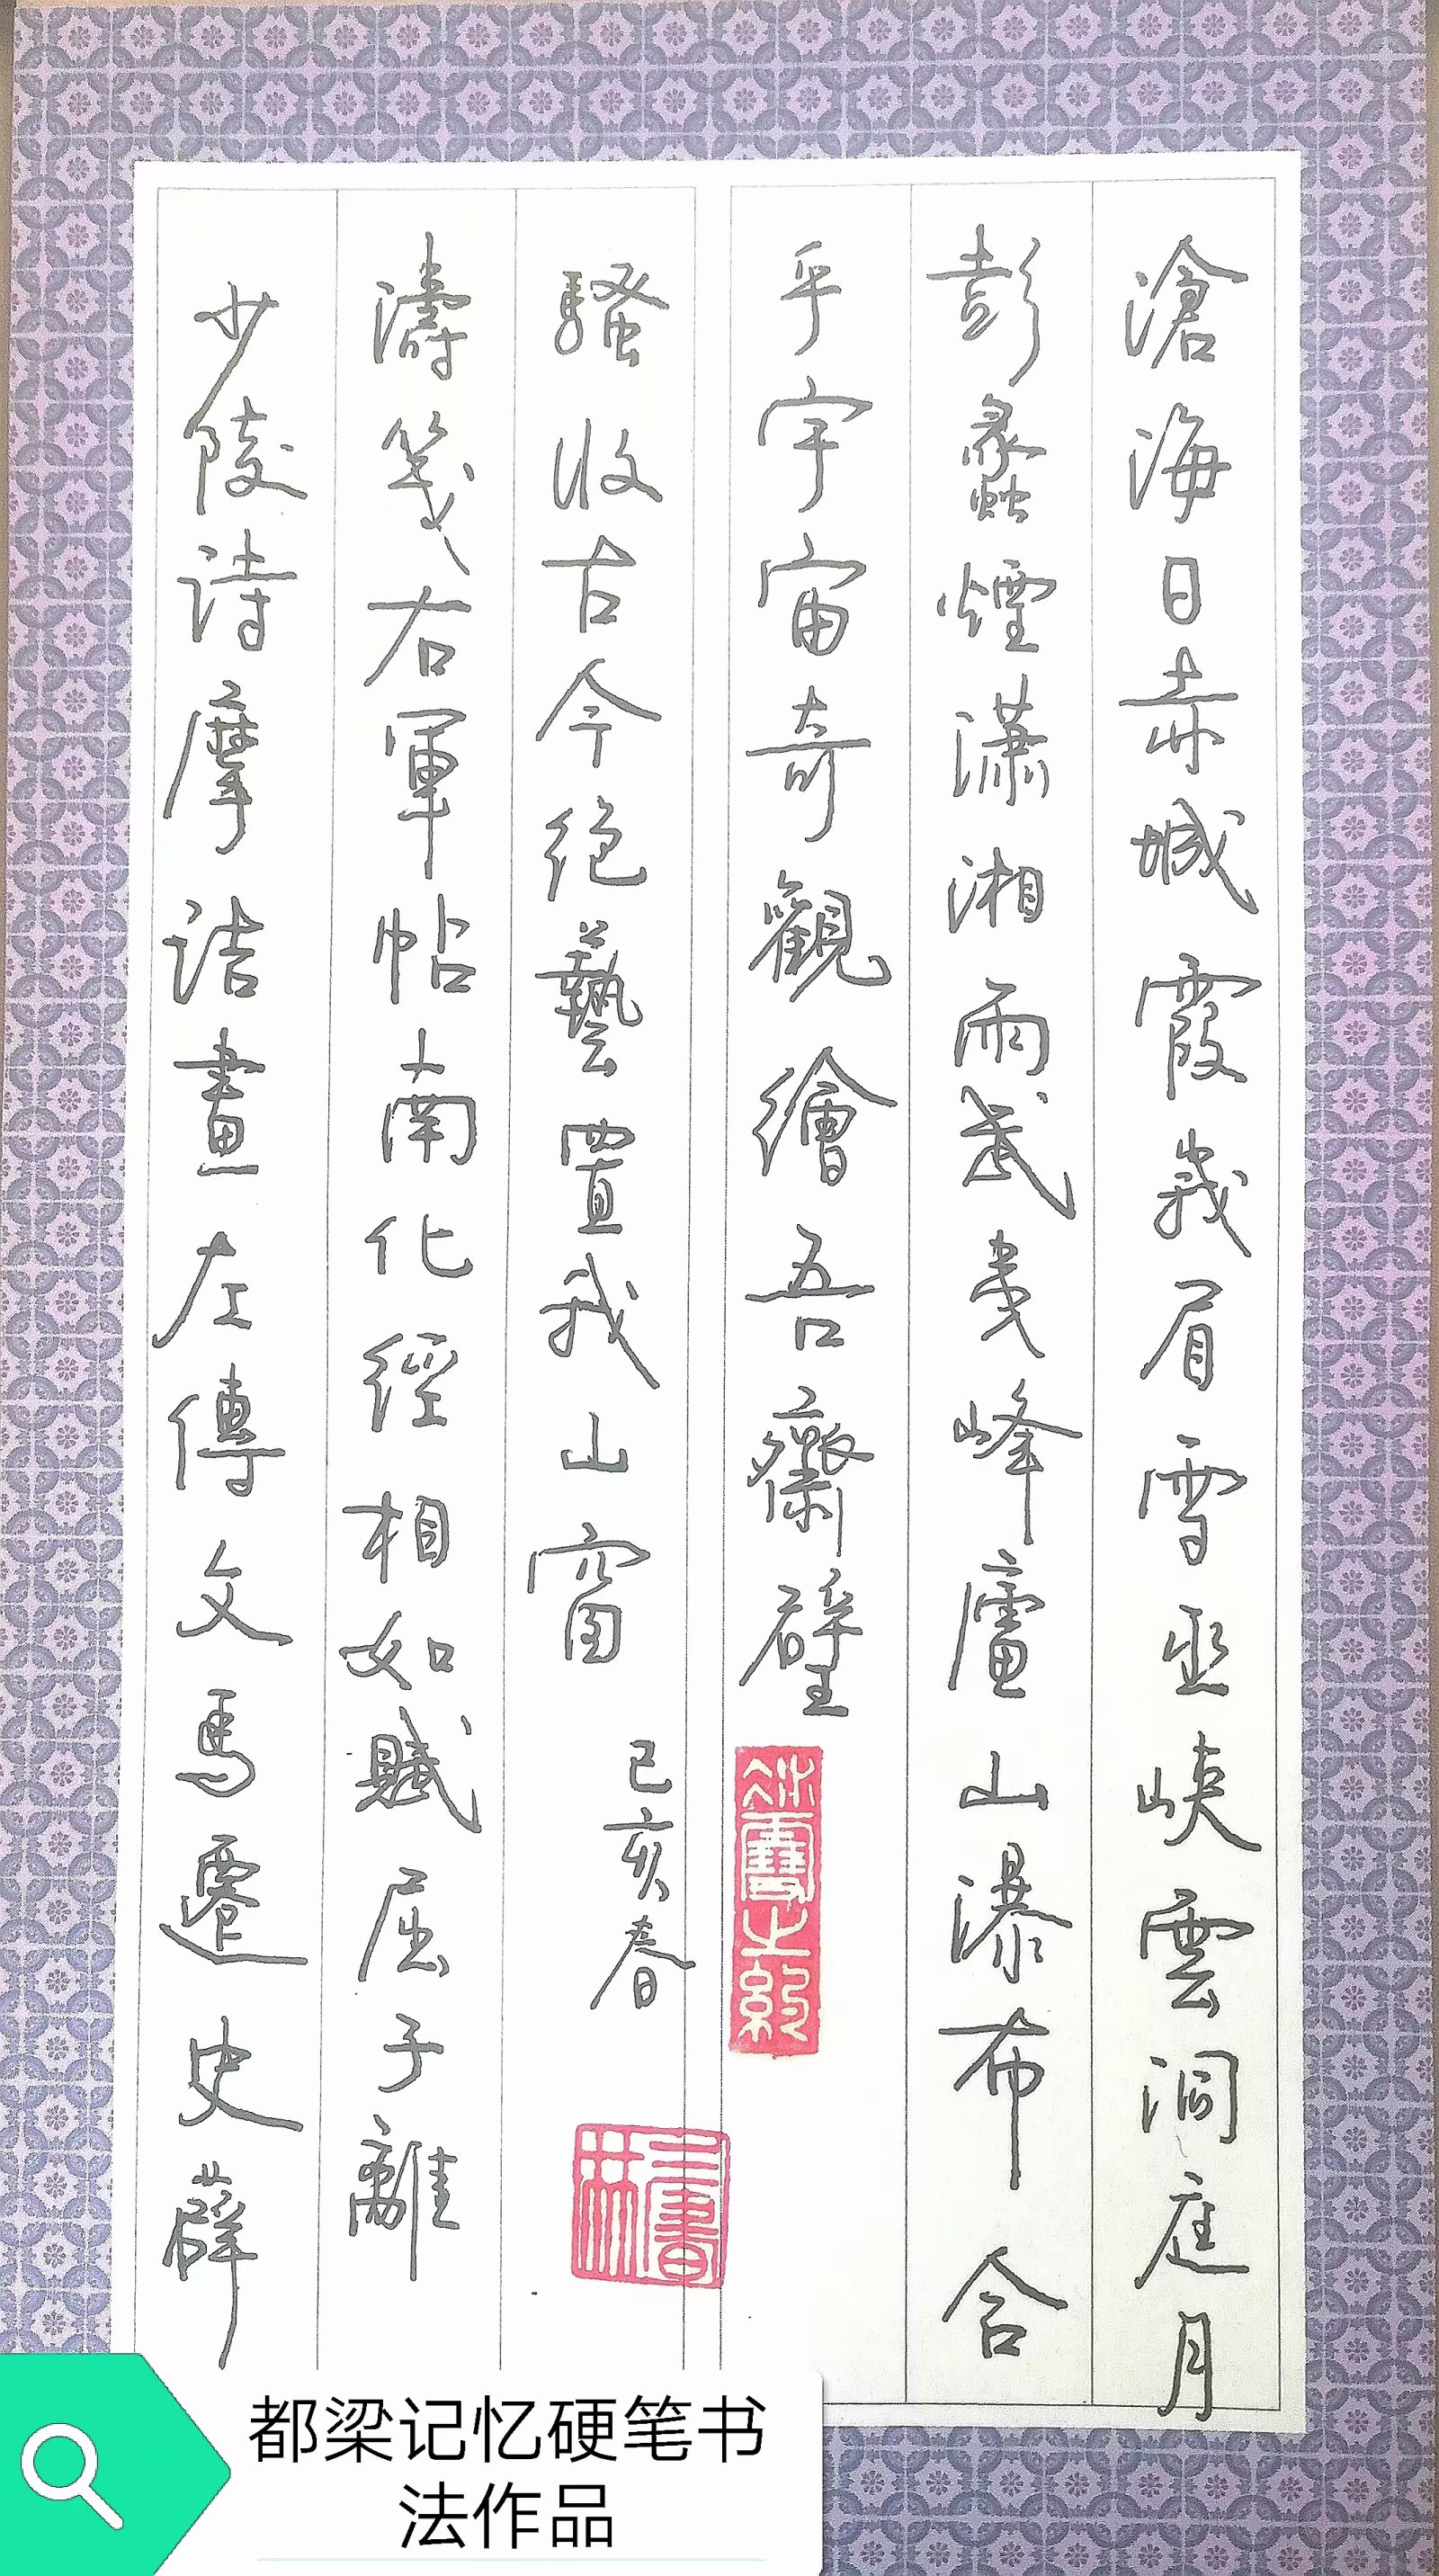 滄海日赤城霞峩眉雪巫峽雲洞庭月
彭蠡煙瀟湘雨武夷峰廬山瀑布合
乎宇宙奇觀繪吾齋壁
少陵詩摩詰畫左傳文馬遷史薛
濤箋右軍帖南化經相如賦屈子離
騷收古今絕藝置我山窗
己亥春
都梁记忆硬笔书
法作品